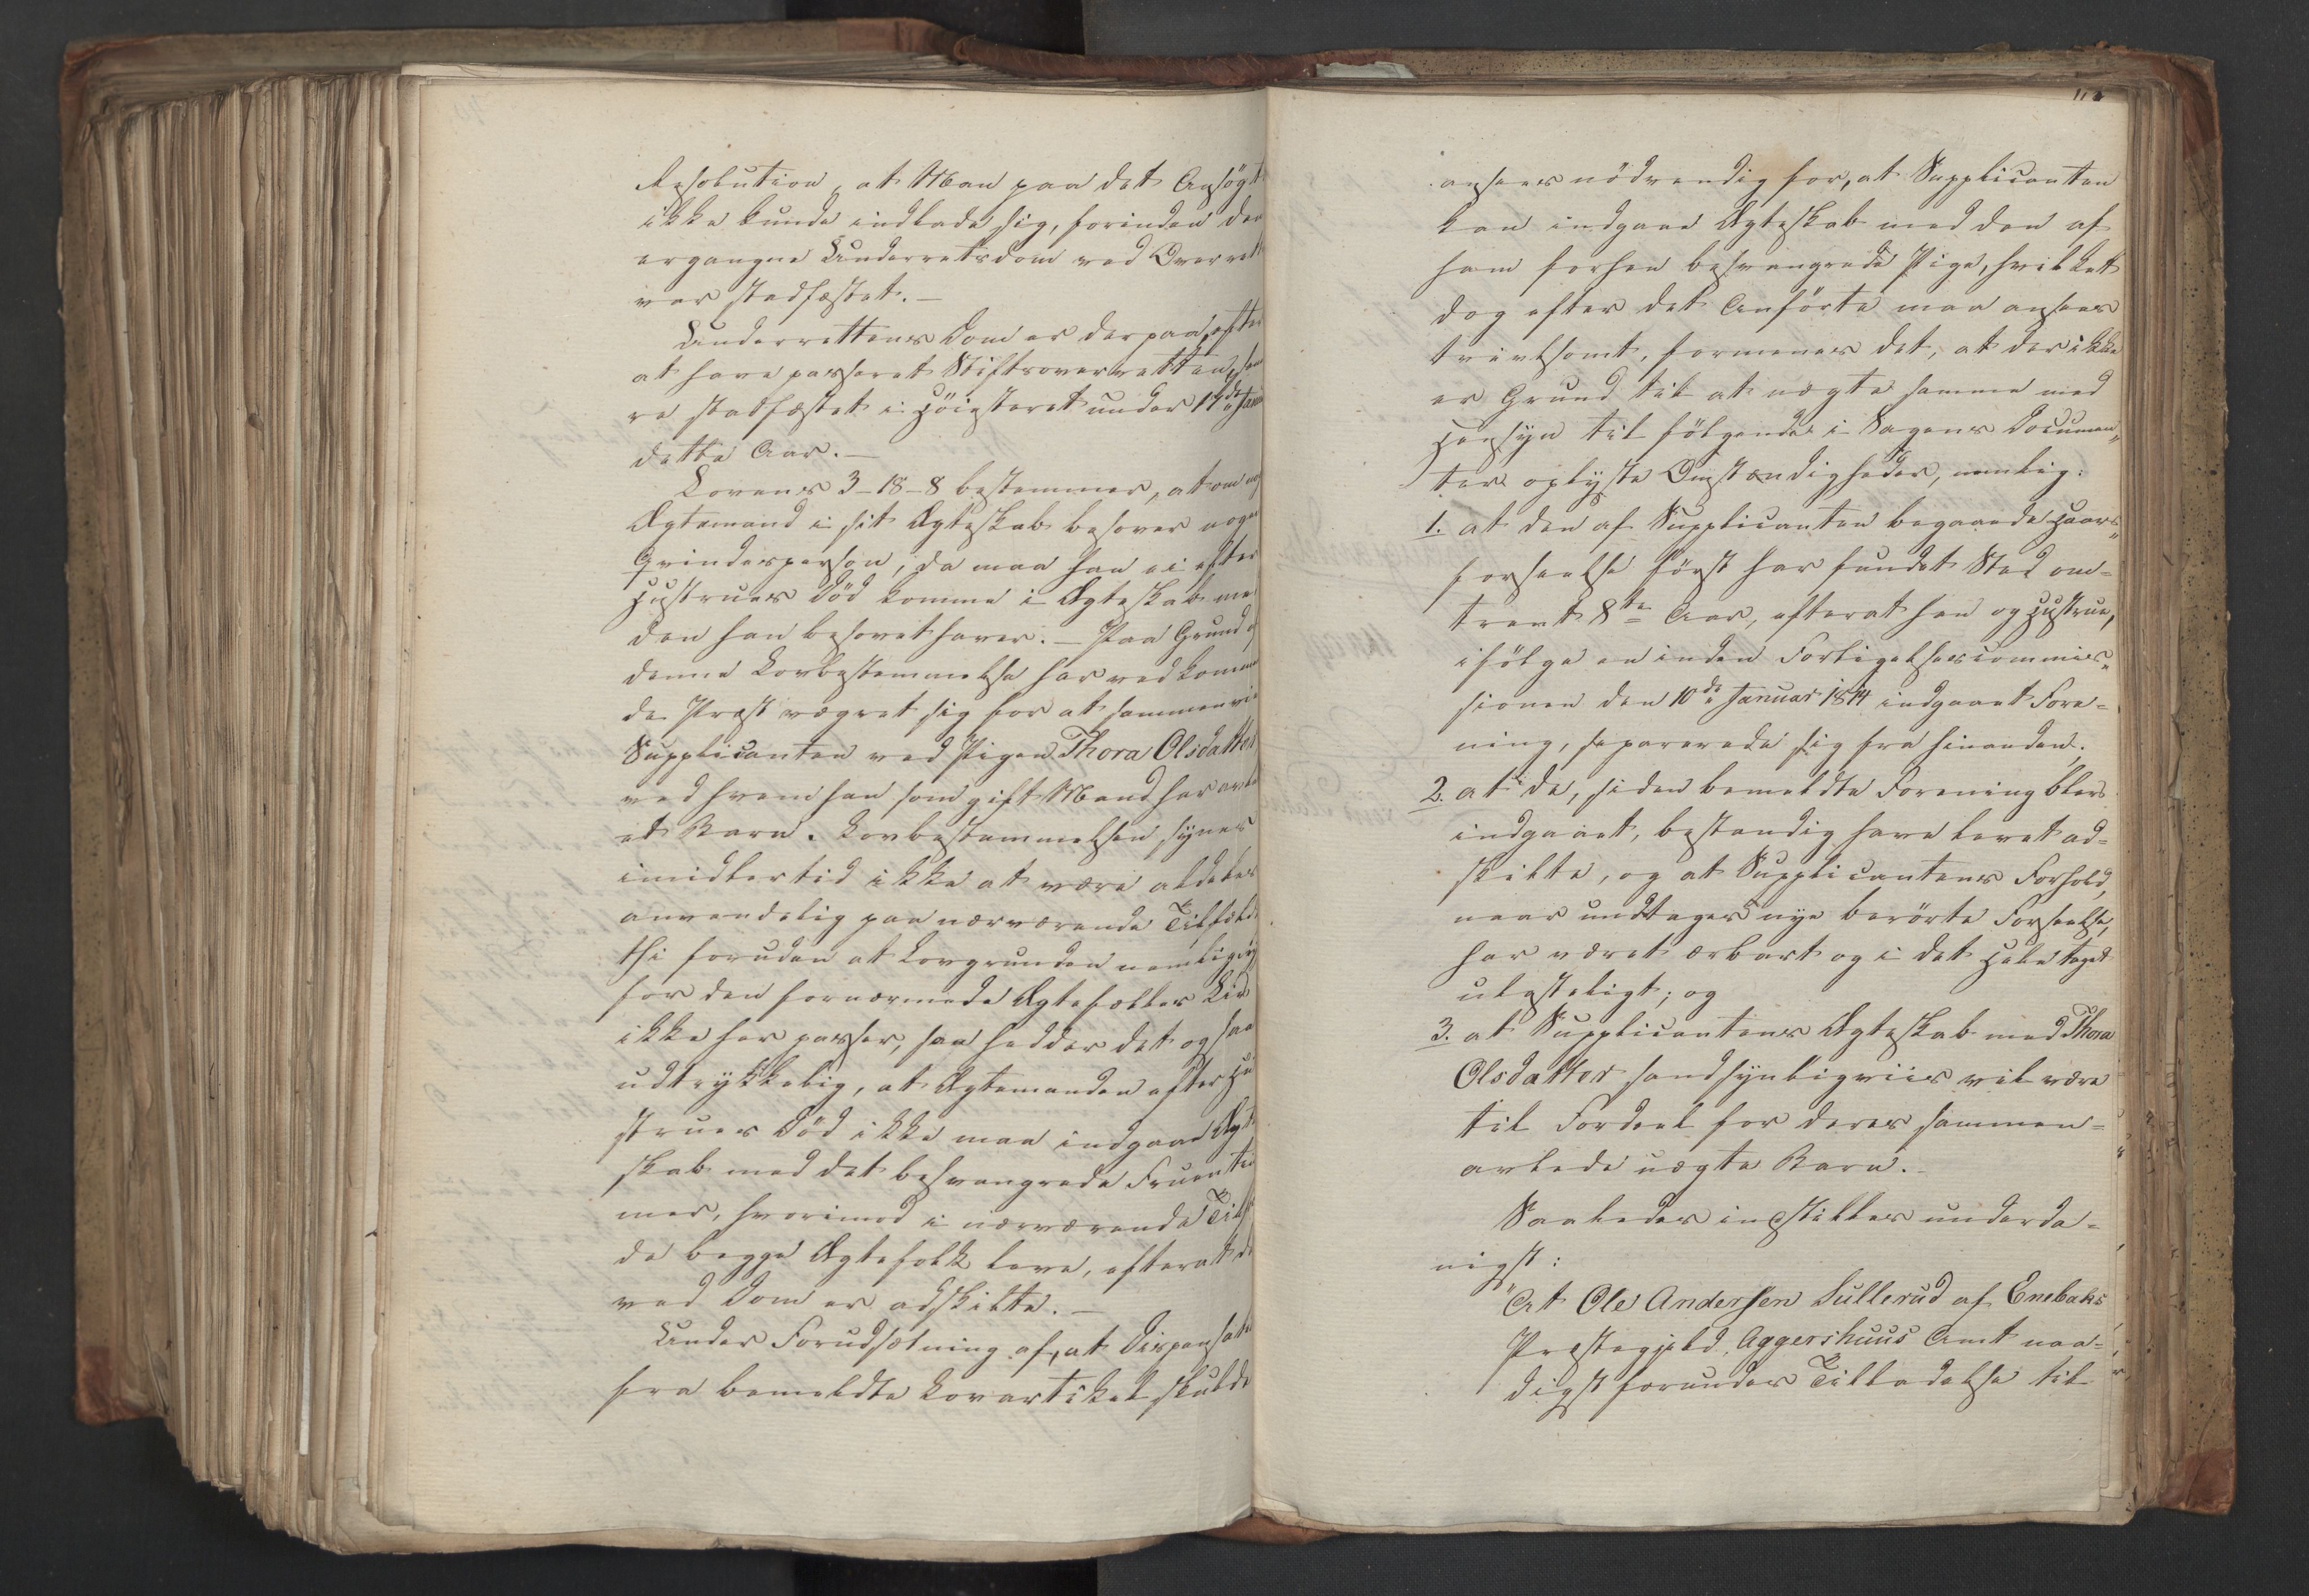 Resolution, at Man paa det Ansøgt
ikke kunde indlade sig, forinden den
ergangne Underretsdom ved Overrett
var stadfæstet. —
Underrettens Dom er derpaa, efter
at have passeret Stiftsoverretten,
re stadfæstet i Höiesteret under 17de Janu
dette Aar. —
Lovens 3-18-8 bestemmer, at om nog
Ægtemand i sit Ægteskab besover nogen
Qvindesperson, da maa han ei efter
Hustruens Död komme i Ægteskab me
den han besovet haver. — Paa Grund af
denne Lovbestemmelse har vedkommen
de Præst vægret sig for at sammenvie
Supplicanten med Pigen Thora Olsdatter
med hvem han som gift Mand har avlet
et Barn. Lovbestemmelsen synes
imidlertid ikke at være aldeles
anvendelig paa nærværende Tilfælde
thi foruden at Lovgrunden nemlig
for den fornærmede Ægtefælles Liv
ikke her passer, saa hedder det ogsaa
udtrykkelig, at Ægtemanden efter Hu
struens Död ikke maa indgaae Ægte
skab med det besvangrede Fruentim
mer, hvorimod i nærværende Tilf
de begge Ægtefolk leve, efterat de
ved Dom er adskilte. —
Under Forudsætning af, at Dispensation
fra bemeldte Lovartikel skulde
ansees nödvendig for, at Supplicanten
kan indgaae Ægteskab med den af
ham forhen besvangrede Pige, hvilket
dog efter det Anförte maa ansees
tvivlsomt, formenes det, at der ikke
er Grund til at nægte samme med
Hensyn til fölgende i Sagens Documen„
ter oplyste Omstændigheder, nemlig:
1. at den af Supplicanten begaaede Hoers„
forseelse först har fundet Sted om=
trent 8te Aar, efterat han og Hustrue,
ifölge en inden Forligelsescommis„
sionen den 10de Januar 1814 indgaaet Fore=
ning, separerede sig fra hinanden;
2. at de, siden bemeldte Forening blev
indgaaet, bestandig have levet ad=
skilte, og at Supplicantens Forhold,
naar undtages nys berörte Forseelse,
har været ærbart og i det Hele taget
ulasteligt; og
3. at Supplicantens Ægteskab med Thora
Olsdatter sandsynligviis vil være
til Fordeel for deres sammen=
avlede uægte Barn.
Saaledes indstilles underda=
nigst:
"At Ole Andersen Lullerud af Enebaks
Præstegjeld, Aggershuus Amt naa=
digst forundes Tilladelse til